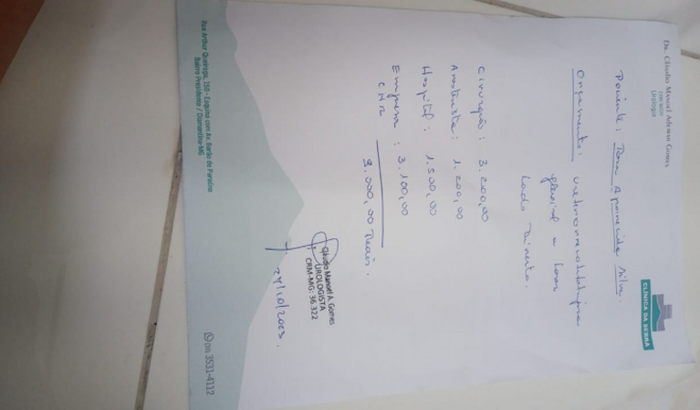 Dr. Cláudio Manoel Gomes
Urologia
CLÍNICA DA SERRA
Paciente: Aparecida Silva.
Orçamento:
flexível - Laser
Lado Direito.
Cirurgião: 3.200,00
Anestesista: 1.200,00
Hospital: 1.500,00
Empresa: 3.100,00
9.000,00 reais.
Cláudio Manoel A. Gomes
UROLOGISTA
CRM-MG: 36.322
27/10/2023.
Rua Arthur Queiroga, 150 - Esquina com Av. Barão de Paraúna
Bairro Presidente / Diamantina-MG
3531-4112